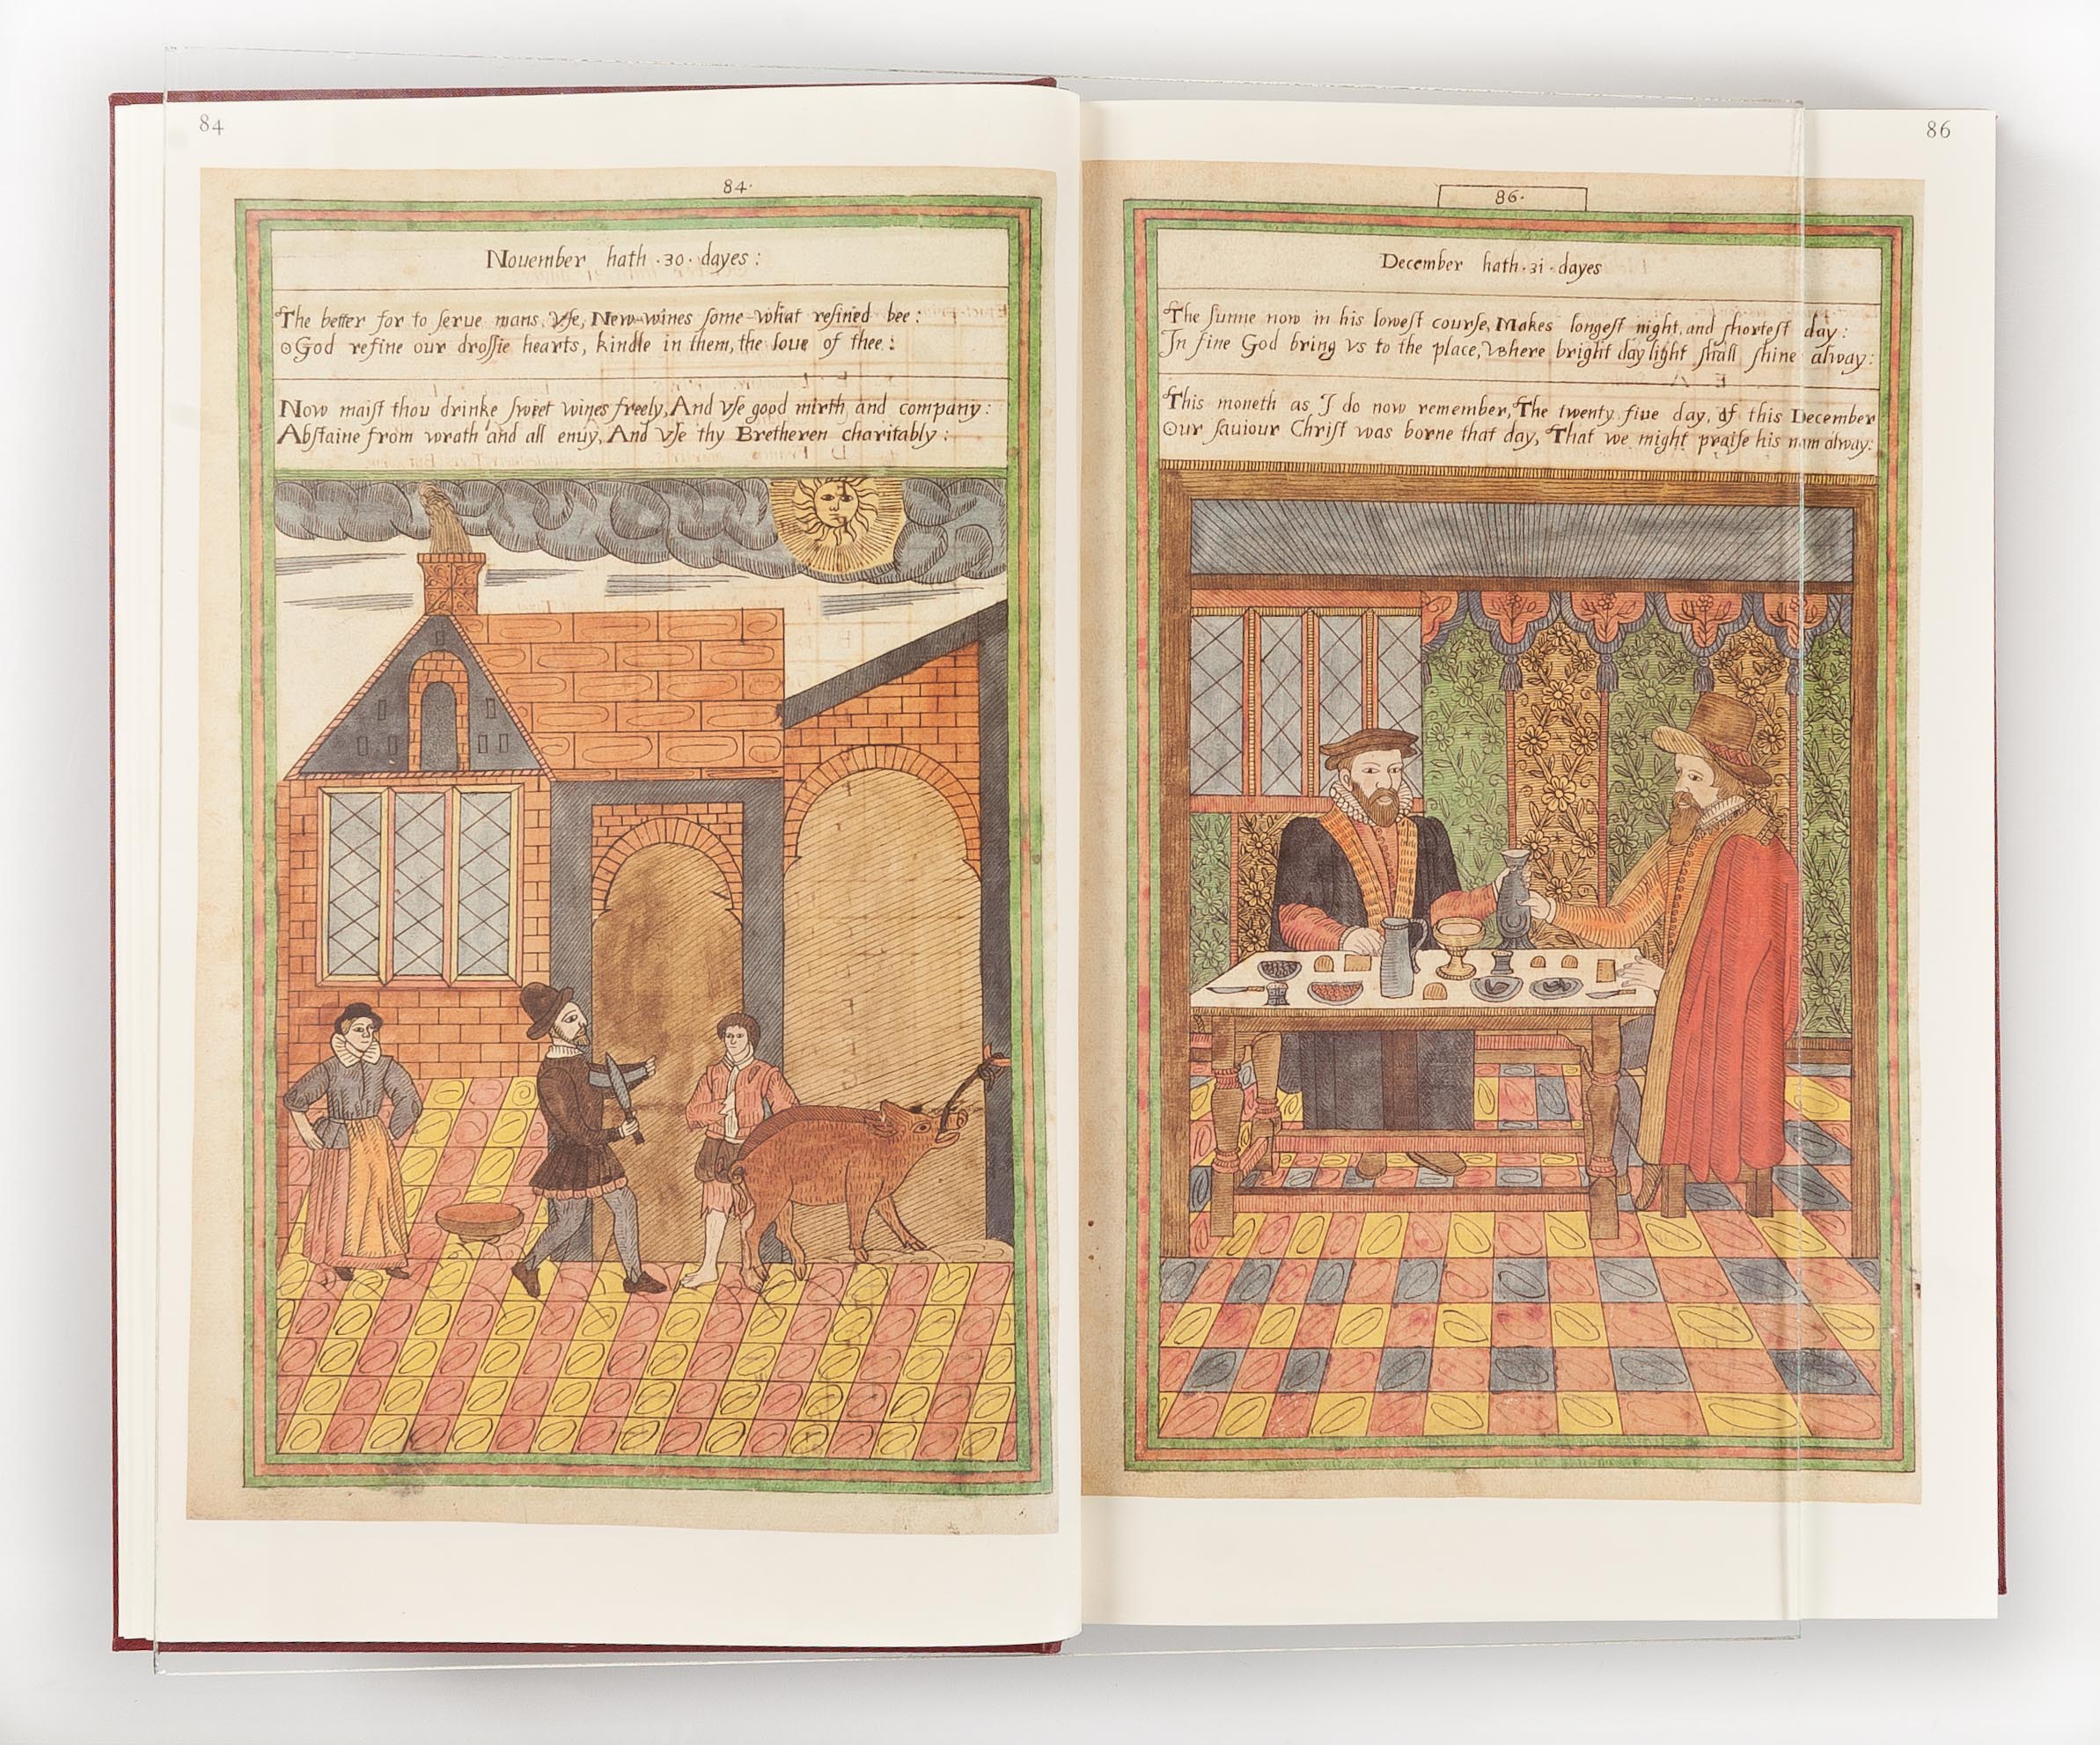 84
84·
Nouember hath ·30· dayes:
The better for to ſerue mans Vſe, New-wines ſome-what refined bee:
O God refine our droſſie hearts, kindle in them, the loue of thee:
Now maiſt thou drinke ſweet wines freely, And Vſe good mirth and company:
Abſtaine from wrath and all enuy, And Vſe thy Bretheren charitably:
86
86·
December hath ·31· dayes
The ſunne now in his loweſt courſe, Makes longeſt night, and ſhorteſt day:
In fine God bring vs to the place, Where bright day light ſhall ſhine alway:
This moneth as I do now remember, The twenty fiue day, of this December
Our ſauiour Chriſt was borne that day, That we might praiſe his nam alway: